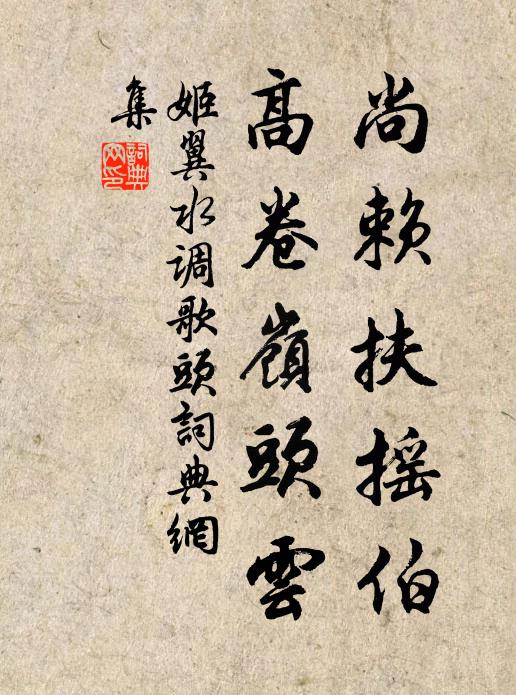 尚赖扶摇伯
高卷嶺頭雲
姬翼水调歌頭詞典網
集
詞典
网印